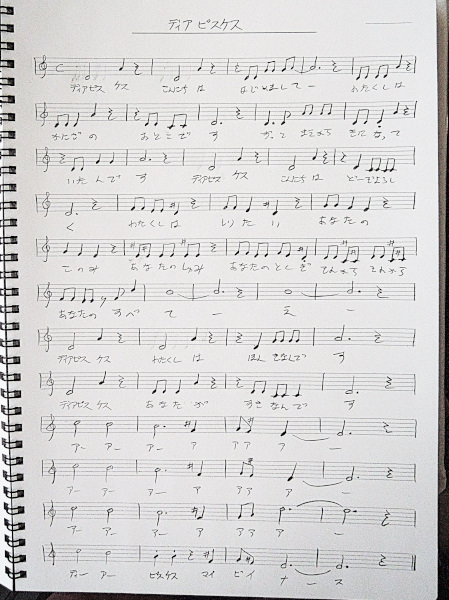 ディア ピスケス
ディアピス ケス こんにち は はじめまして ー わたくしは
かたざの おとこで す かってまえから きになって
いたんで す ディアピス ケス こんにち は どーぞよろし
く わたくしは しりたい あなたの
このみ あなたのしゅみ あなたのとしも それから それから
あなたの すべ て ー え ー
ディアピス ケス わたくし は ほん きなんで す
ディアピス ケス あなた が すきなんで す
アー アー アー ア アア ア ー
アー アー アー ア アア ア ー
アー アー アー ア アア ア ー
ディー アー ピスケス マイ ビイ ナ ー ス